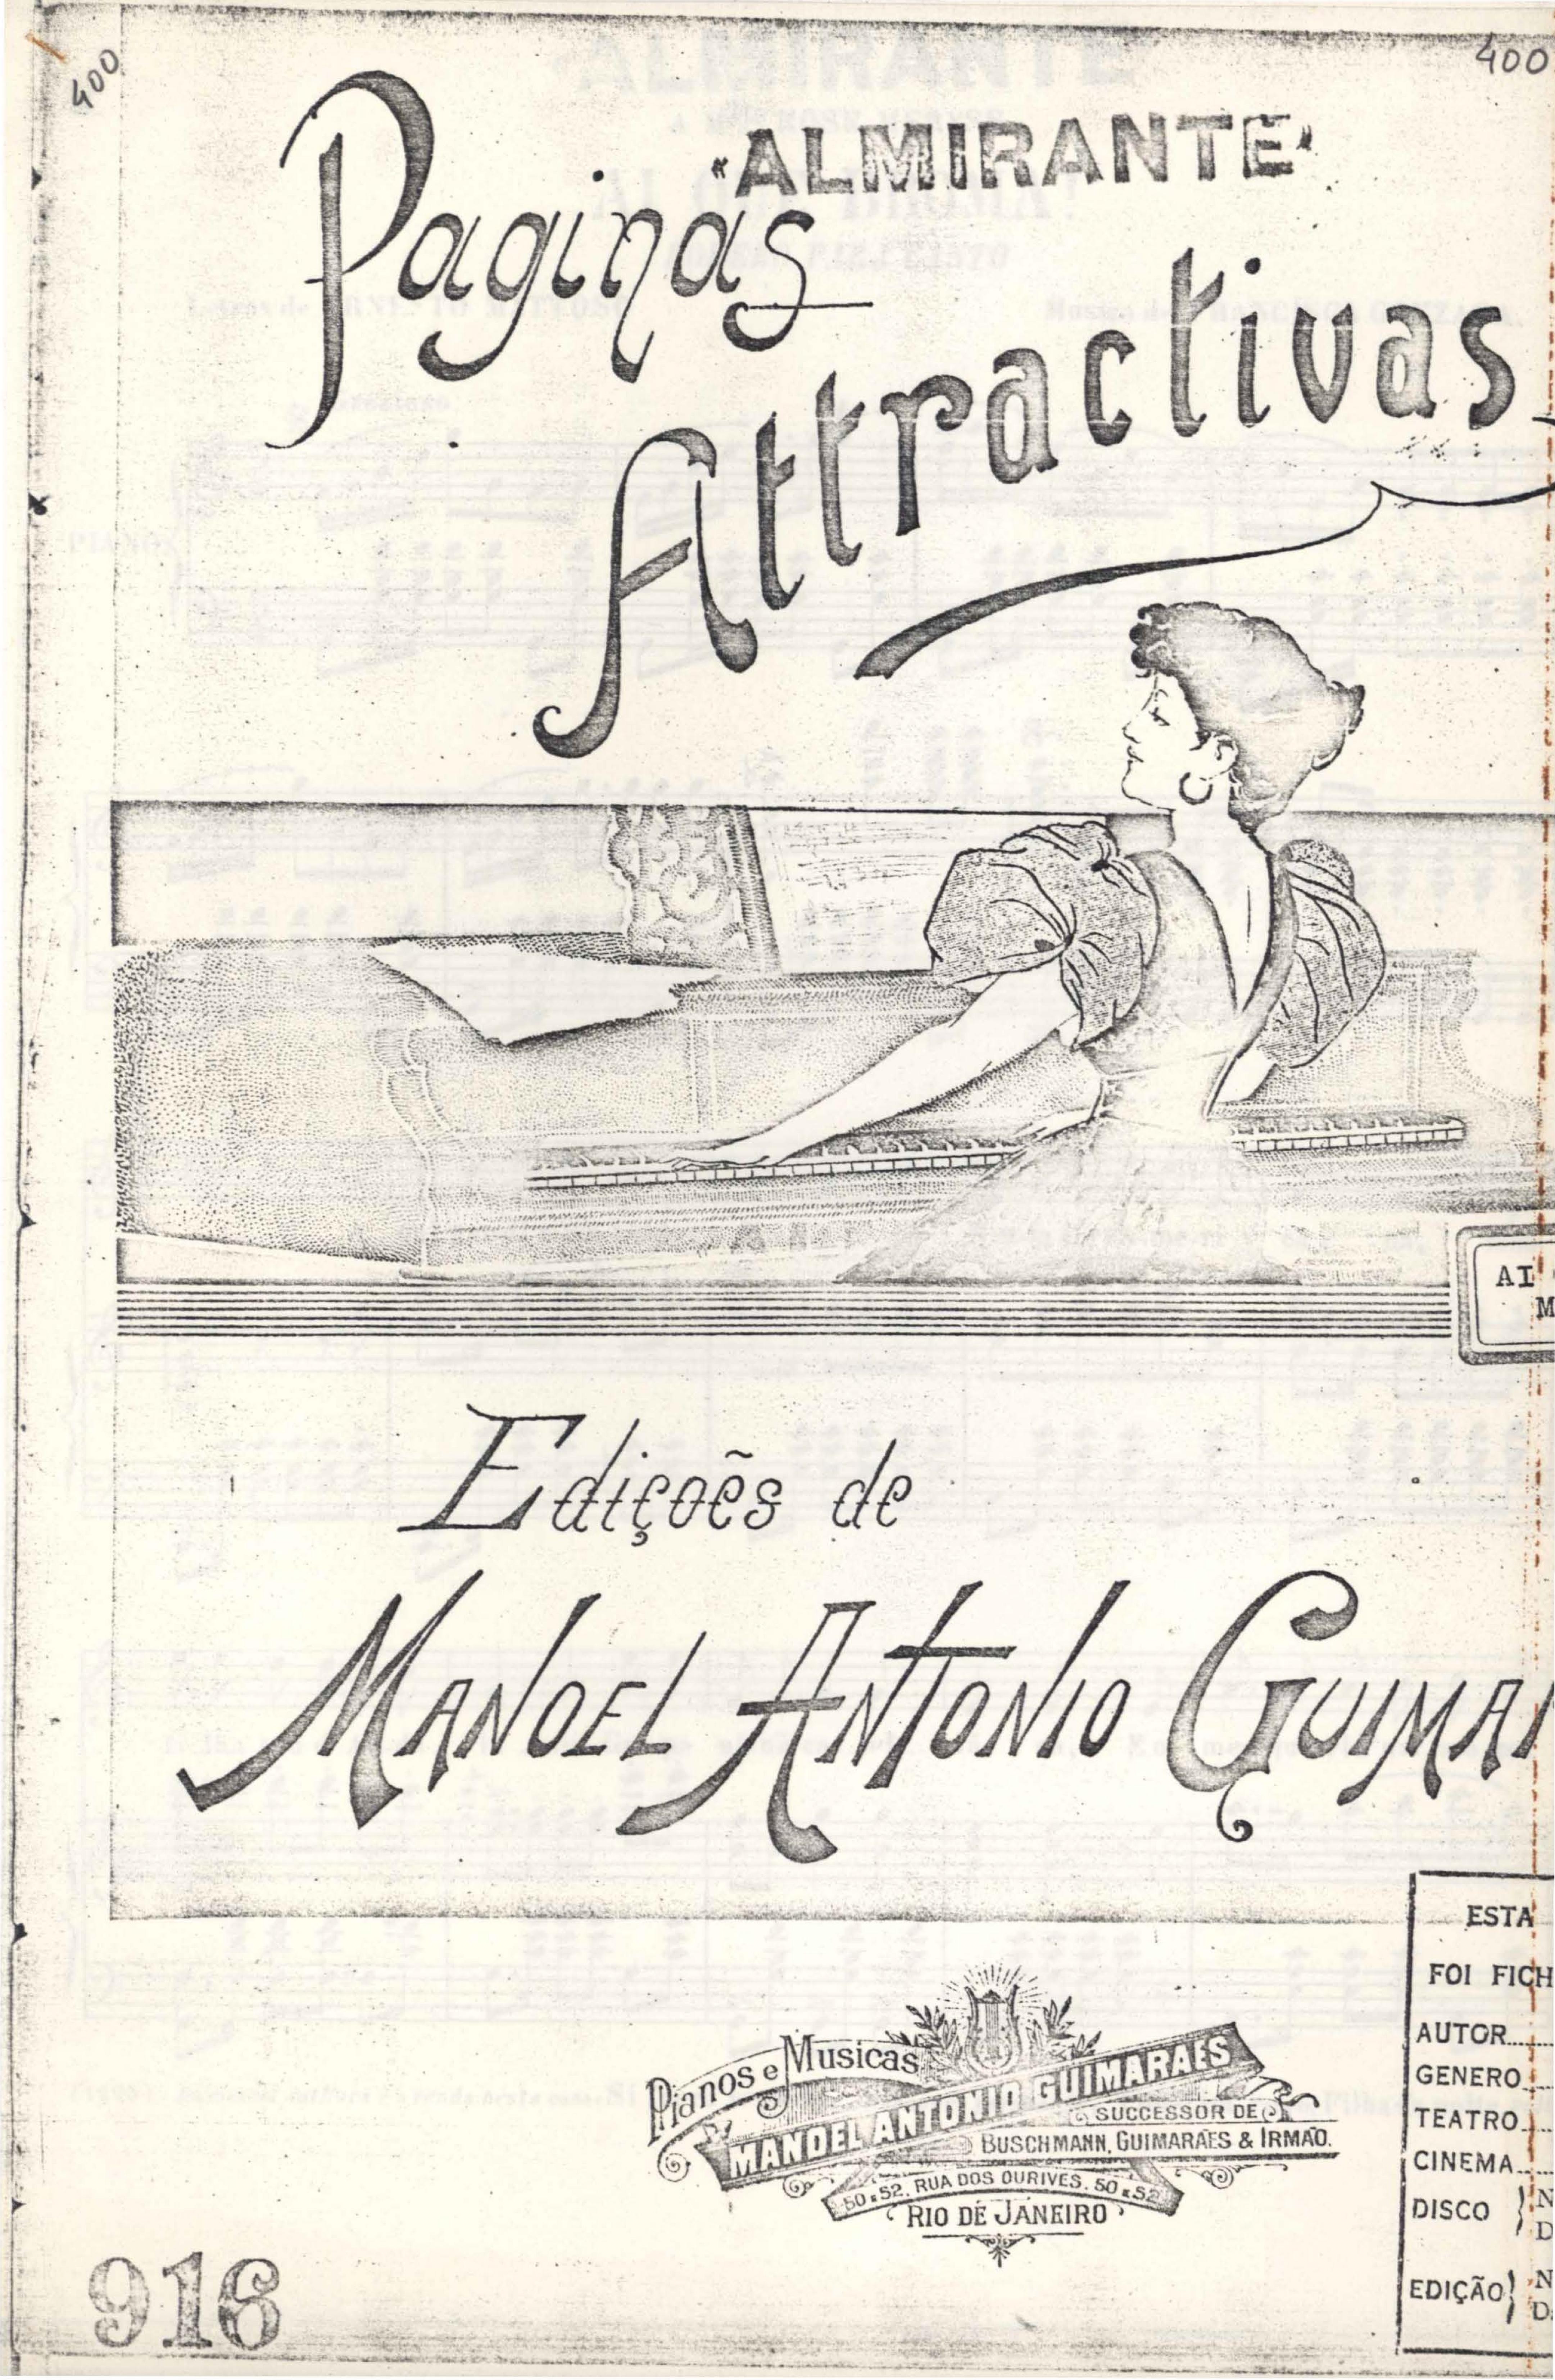 400
400
«ALMIRANTE»
Paginas
Attractivas
AI
M
Edições de
MANOEL ANTONIO GUIMAR
ESTA
FOI FICH
AUTOR
GENERO
TEATRO
CINEMA
DISCO } N
D
EDIÇÃO } N
D
Pianos e Musicas
MANOEL ANTONIO GUIMARAES
SUCCESSOR DE
BUSCHMANN, GUIMARAES & IRMÃO.
50 E 52, RUA DOS OURIVES, 50 E 52
RIO DE JANEIRO
916